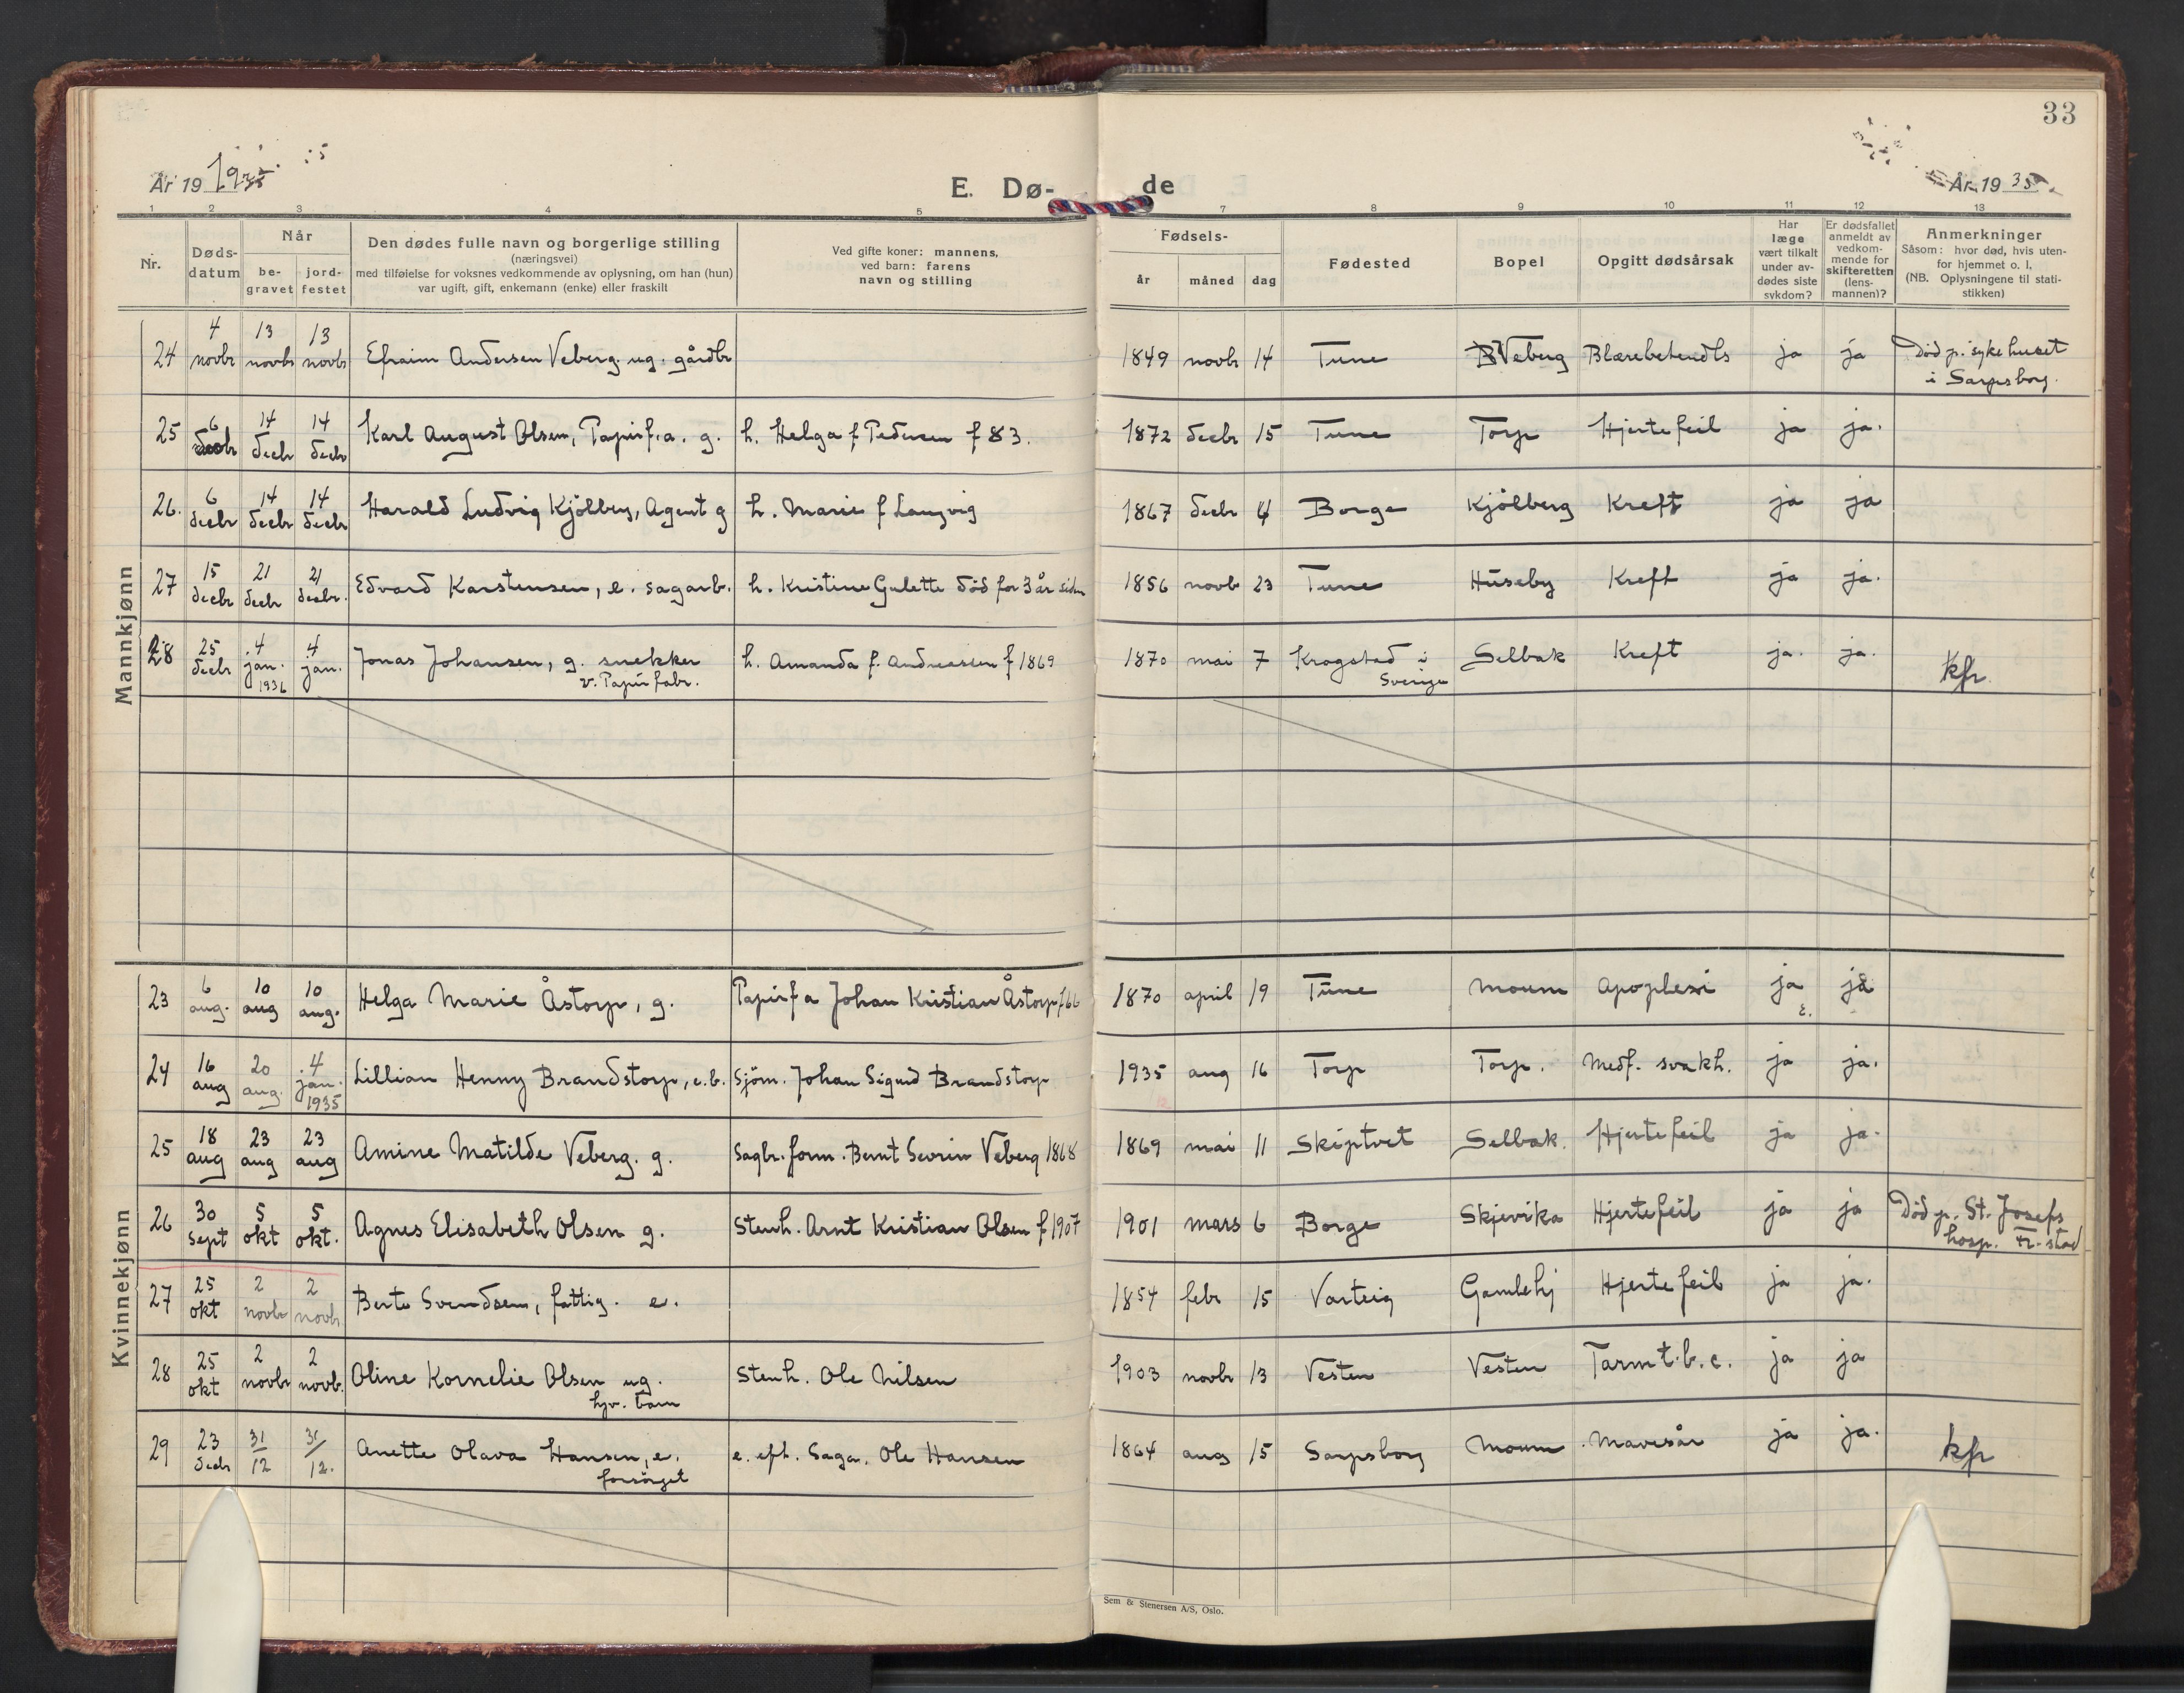 33
År 19 1935
E. Dø-
de
År 19 35
1 2 3 4 5 7 8 9 10 11 12 13
Nr.
Døds-
datum
Når
be-
gravet
jord-
festet
Den dødes fulle navn og borgerlige stilling
(næringsvei)
med tilføielse for voksnes vedkommende av oplysning, om han (hun)
var ugift, gift, enkemann (enke) eller fraskilt
Ved gifte koner: mannens,
ved barn: farens
navn og stilling
Fødsels-
år måned dag
Fødested
Bopel
Opgitt dødsårsak
Har
læge
vært tilkalt
under av-
dødes siste
sykdom?
Er dødsfallet
anmeldt av
vedkom-
mende for
skifteretten
(lens-
mannen)?
Anmerkninger
Såsom: hvor død, hvis uten-
for hjemmet o. l.
(NB. Oplysningene til stati-
stikken)
Mannkjønn
24 4 novbr 13 novbr 13 novbr Efraim Andersen Veberg. ug. gårdbr 1849 novbr 14 Tune Veberg Blærebetendls ja ja Död p. sykehuset
i Sarpsborg.
25 6 decbr 14 decbr 14 decbr Karl August Olsen, Papirf.a. g. h. Helga f Pedersen f 83. 1872 decbr 15 Tune Torp Hjertefeil ja ja.
26. 6 decbr 14 decbr 14 decbr Harald Ludvig Kjölberg, Agent g h. Marie f Langvig 1867 decbr 4 Borge Kjölberg Kreft ja ja
27 15 decbr 21 decbr 21 decbr. Edvard Karstensen, e. sagarb. h. Kristine Gulette död for 3 år siden 1856 novb 23 Tune Huseby Kreft ja ja.
28 25 decbr 4 jan. 1936 4 jan. Jonas Johansen, g. snekker
v. Papirfabr. h. Amanda f. Andreassen f 1869 1870 mai 7 Krogstad i
Sverige Selbak Kreft ja. ja. kfr
Kvinnekjønn
23 6 aug. 10 aug 10 aug. Helga Marie Åstorp, g. Papirf a Johan Kristian Åstorp f 66 1870 april 19 Tune Moum Apoplexi ja ja
24 16 aug 20 aug. 4 jan. 1935 Lillian Henny Brandstorp, e.b. Sjöm. Johan Sigurd Brandstorp 1935 aug 16 Torp Torp. Medf. svakh. ja ja.
25 18 aug 23 aug 23 aug Amine Matilde Veberg. g. Sagbr. form. Bernt Sevrin Veberg 1868 1869 mai 11 Skiptvet Selbak. Hjertefeil ja ja.
26 30 Sept 5 okt 5 okt. Agnes Elisabeth Olsen g. Stenh. Arnt Kristian Olsen f 1907 1901 mars 6 Borge Skjevika Hjertefeil ja ja Död p. St. Josefs
hosp. Fr.stad
27 25 okt 2 novbr 2 novbr Berte Svendsen, fattig. e. 1854 febr 15 Varteig Gamlehj Hjertefeil ja ja.
28 25 okt 2 novbr 2 novb. Oline Kornelie Olsen ug.
hjv. barn Stenh. Ole Nilsen 1903 novbr 13 Vesten Vesten Tarm t.b.c. ja ja
29 23 decbr 31/12 31/12. Anette Olava Hansen, e.
forsörget e. eft. Saga. Ole Hansen 1864 aug 15 Sarpsborg Moum Mavesår ja ja. kfr
Sem & Stenersen A/S, Oslo.